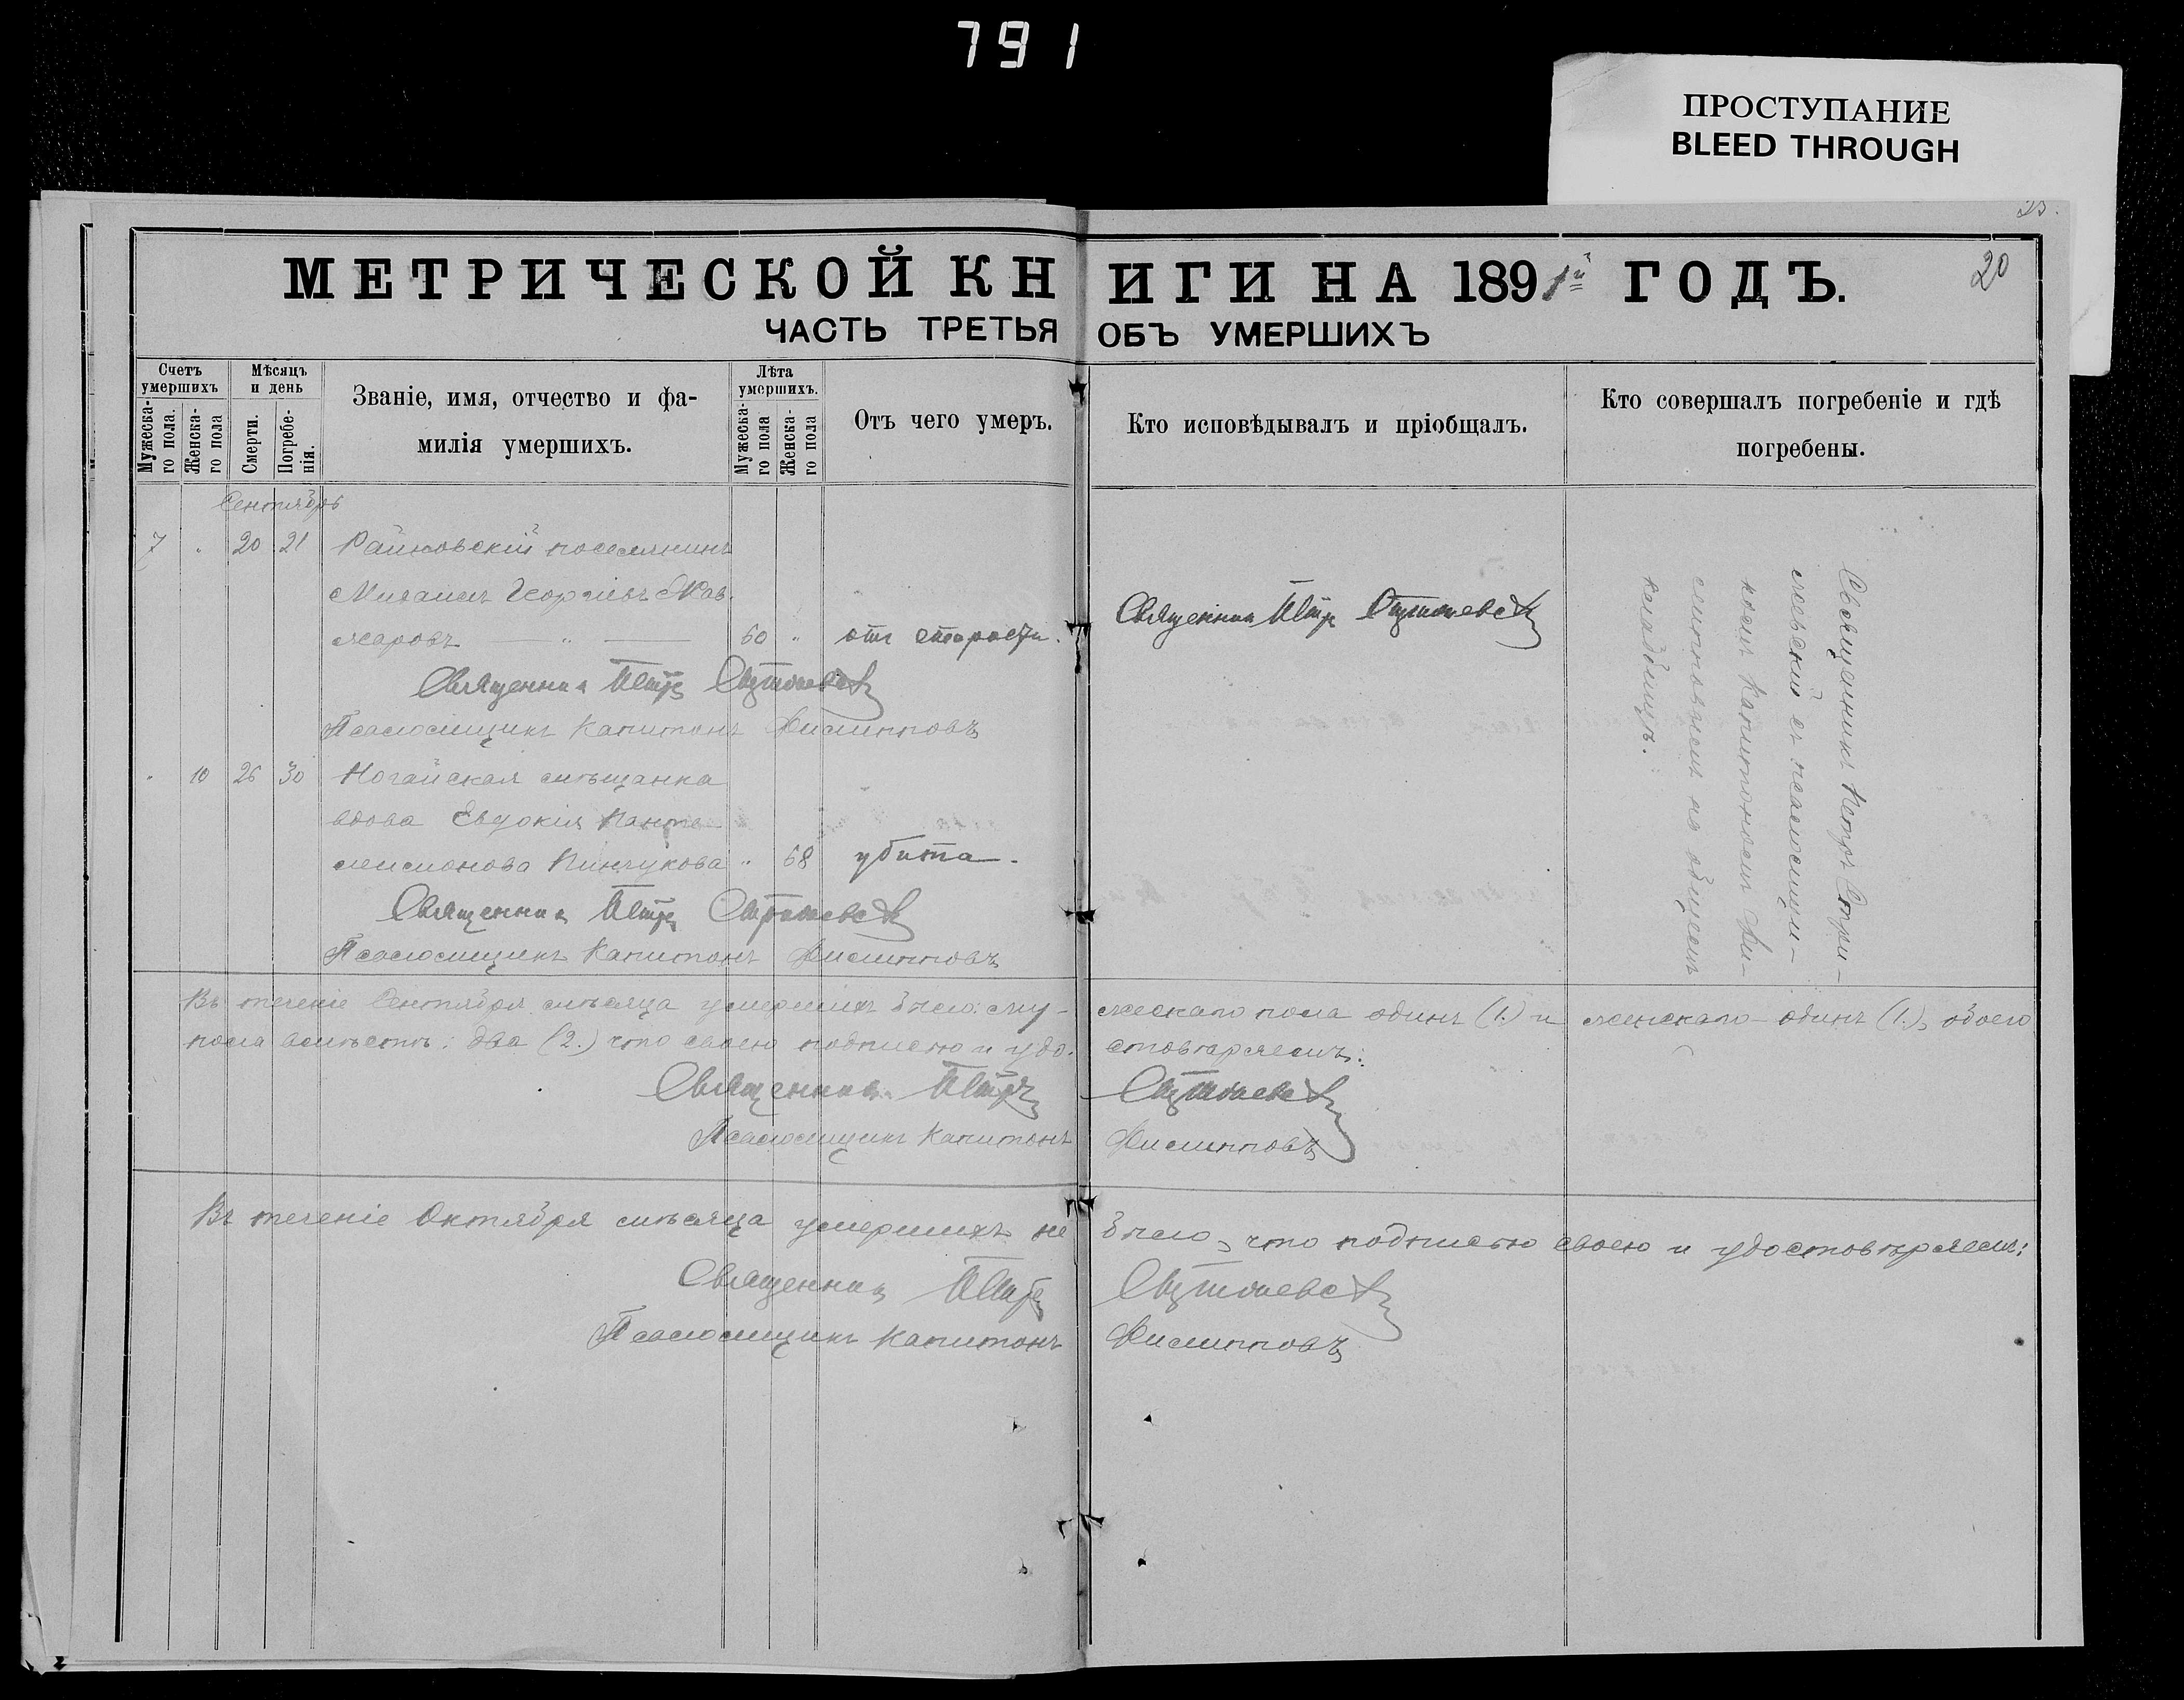 791
ПРОСТУПАНИЕ
BLEED THROUGH
МЕТРИЧЕСКОЙ КНИГИ НА 1891й ГОДЪ.
20
ЧАСТЬ ТРЕТЬЯ ОБЪ УМЕРШИХЪ
Счетъ умершихъ
Мужеска-го пола.
Женска-го пола
Мѣсяцъ и день
Смерти.
Погребе-нія.
Званіе, имя, отчество и фа-
милія умершихъ.
Лѣта умершихъ.
Мужеска-го пола
Женска-го пола
Отъ чего умеръ.
Кто исповѣдывалъ и пріобщалъ.
Кто совершалъ погребеніе и гдѣ
погребены.
Сентябрь
7 " 20 21 Райновскій поселянинъ
Михаилъ Георгіевъ
60 " отъ старости.
Священникъ Петръ
Священникъ Петръ
Псаломщикъ Капитонъ Филипповъ
" 10 26 30 Ногайская мѣщанка
вдова Евдокія Панте-
леимонова Пинчукова " 68 убита.
Священникъ Петръ
Псаломщикъ Капитонъ Филипповъ
Священникъ Петръ
съ псаломщи-
комъ Капитономъ Фи-
липповымъ на общемъ
кладбищѣ.
Въ теченіе Сентября мѣсяца умершихъ было: му-жескаго пола одинъ (1.) и женскаго одинъ (1.), обоего
пола вмѣстѣ: два (2.) что своею подписью и удо-стовѣряемъ:
Священникъ Петръ
Псаломщикъ Капитонъ Филипповъ
Въ теченіе Октября мѣсяца умершихъ не было, что подписью своею и удостовѣряемъ:
Священникъ Петръ
Псаломщикъ Капитонъ Филипповъ